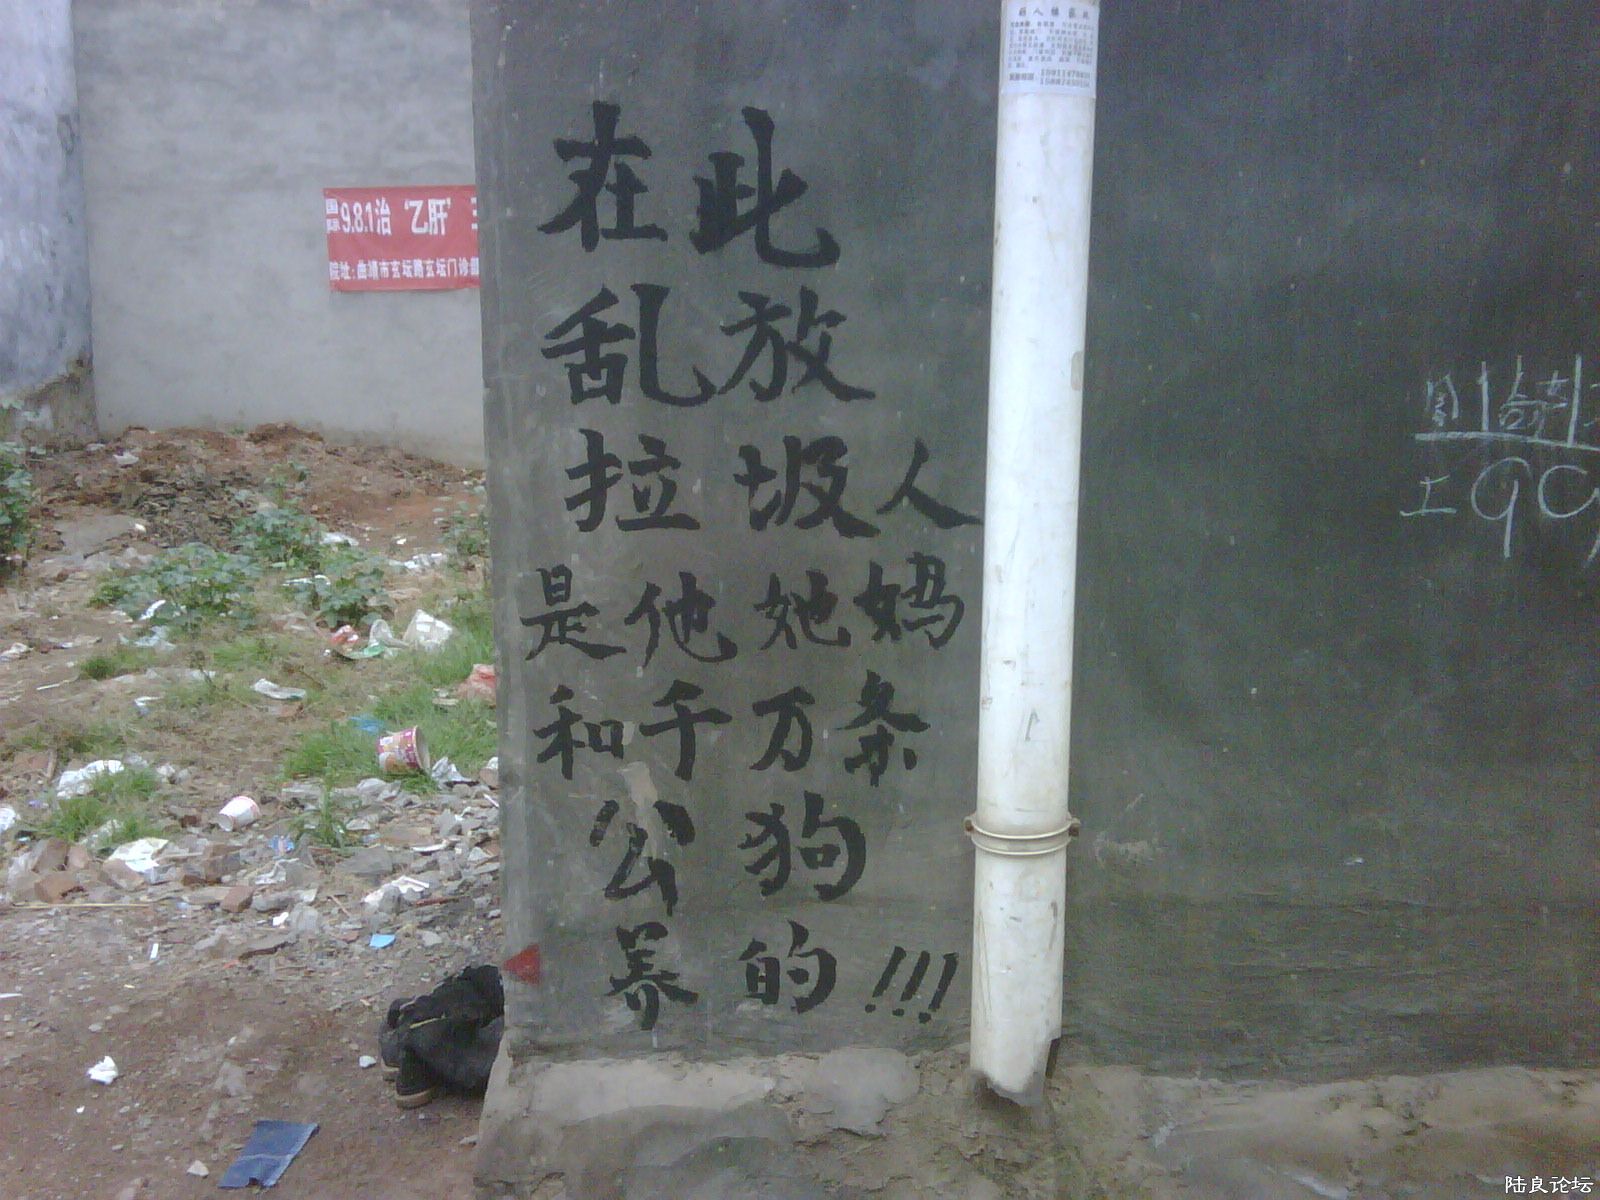 在此
乱放
拉圾人
是他她妈
和千万条
公狗
养的!!!
国际9.8.1治‘乙肝’
院址:曲靖市玄坛路玄坛门诊
工
陆良论坛